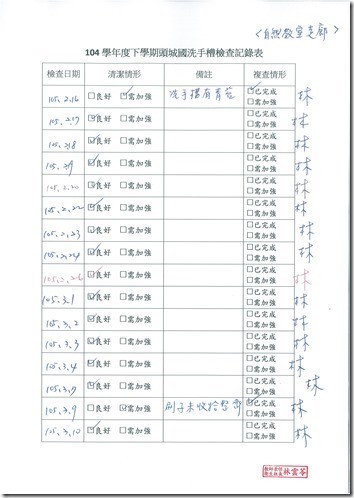 (自然教室走廊)
104 學年度下學期頭城國洗手槽檢查記錄表
檢查日期 清潔情形 備註 複查情形
105.2.16 ☐良好 ☑需加強 洗手槽有青苔 ☑已完成 ☐需加強 林
105.2.17 ☑良好 ☐需加強 ☐已完成 ☐需加強 林
105.2.18 ☑良好 ☐需加強 ☐已完成 ☐需加強 林
105.2.19 ☑良好 ☐需加強 ☐已完成 ☐需加強 林
105.2.20 ☑良好 ☐需加強 ☐已完成 ☐需加強 林
105.2.22 ☑良好 ☐需加強 ☐已完成 ☐需加強 林
105.2.23 ☑良好 ☐需加強 ☐已完成 ☐需加強 林
105.2.24 ☑良好 ☐需加強 ☐已完成 ☐需加強 林
105.2.26 ☑良好 ☐需加強 ☐已完成 ☐需加強 林
105.3.1 ☑良好 ☐需加強 ☐已完成 ☐需加強 林
105.3.2 ☑良好 ☐需加強 ☐已完成 ☐需加強 林
105.3.3 ☑良好 ☐需加強 ☐已完成 ☐需加強 林
105.3.4 ☑良好 ☐需加強 ☐已完成 ☐需加強 林
105.3.7 ☑良好 ☐需加強 ☐已完成 ☐需加強 林
105.3.9 ☐良好 ☑需加強 刷子未收拾整齊 ☑已完成 ☐需加強 林
105.3.10 ☑良好 ☐需加強 ☐已完成 ☐需加強 林
林雲苓